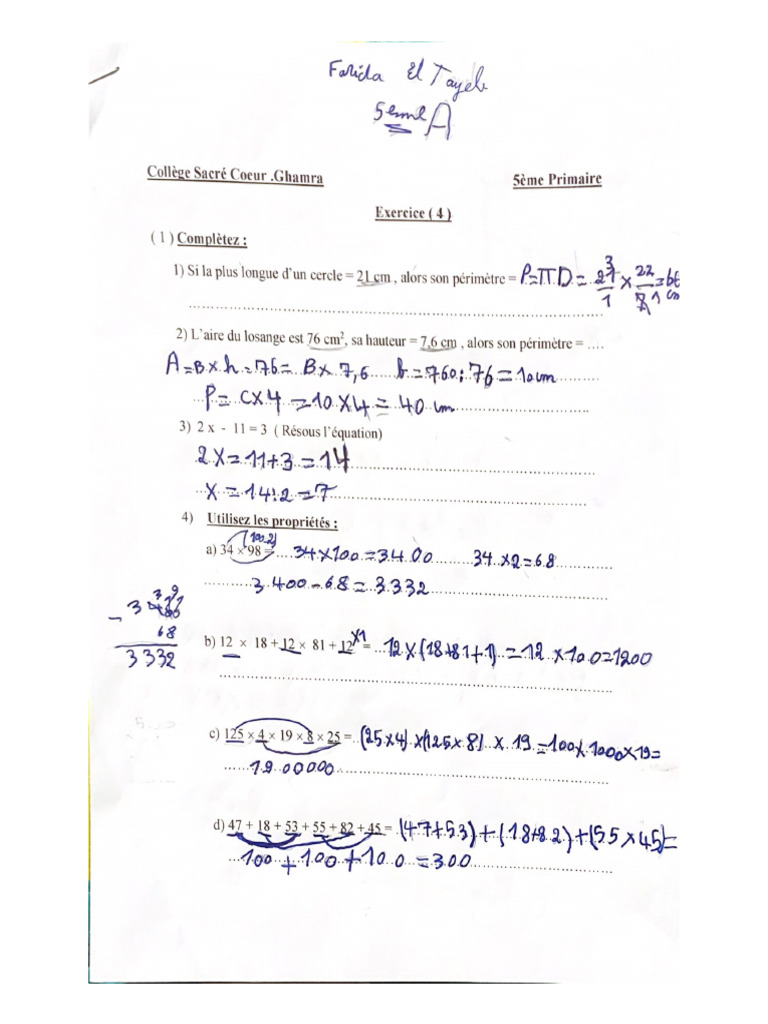 Farida El Tayeb
5eme A
Collège Sacré Coeur .Ghamra 5ème Primaire
Exercice ( 4 )
( 1 ) Complètez :
1) Si la plus longue d'un cercle = 21 cm , alors son périmètre = P=πD = 21/1 × 22/7 = 66 cm
3 1
2) L'aire du losange est 76 cm², sa hauteur = 7,6 cm , alors son périmètre = ….
A=B×h=76= B× 7,6 b=760:76=10cm
P= C×4 =10×4= 40 cm
3) 2 x - 11 = 3 ( Résous l'équation)
2X=11+3=14
X=14:2=7
4) Utilisez les propriétés :
(100-2)
a) 34 × 98 = 34×100=3400 34×2=68
3400-68=3332
- 3400
68
3332
b) 12 × 18 + 12 × 81 + 12 ×1 = 12×(18+81+1)=12×100=1200
c) 125 × 4 × 19 × 8 × 25 = (25×4)×(125×8)×19=100×1000×19=
1900000
d) 47 + 18 + 53 + 55 + 82 + 45 = (47+53)+(18+82)+(55×45)=
100+100+100=300